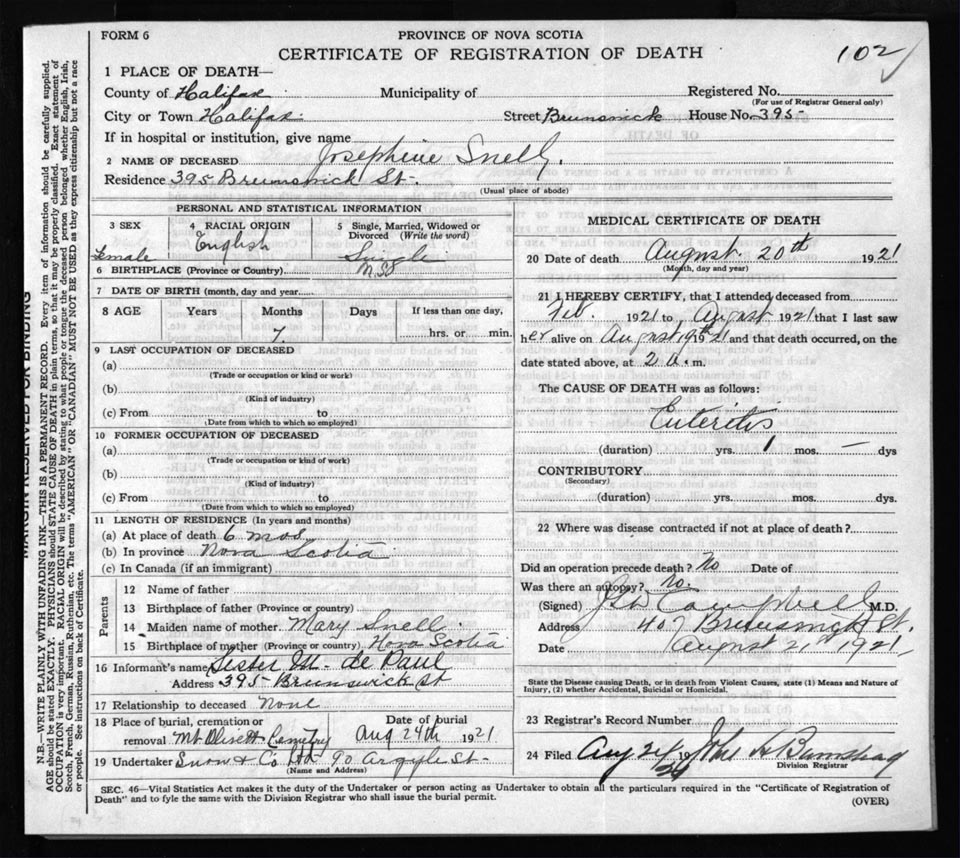 FORM 6
PROVINCE OF NOVA SCOTIA
CERTIFICATE OF REGISTRATION OF DEATH
102
1 PLACE OF DEATH—
County of Halifax Municipality of Registered No.
(For use of Registrar General only)
City or Town Halifax Street Brunswick House No. 395
If in hospital or institution, give name
2 NAME OF DECEASED Josephine Snell
Residence 395 Brunswick St.
(Usual place of abode)
PERSONAL AND STATISTICAL INFORMATION
3 SEX Female
4 RACIAL ORIGIN English
5 Single, Married, Widowed or Divorced (Write the word) Single
6 BIRTHPLACE (Province or Country) N.S.
7 DATE OF BIRTH (month, day and year)
8 AGE Years Months Days If less than one day,
7 hrs. or min.
9 LAST OCCUPATION OF DECEASED
(a)
(Trade or occupation or kind or work)
(b)
(Kind of industry)
(c) From to
(Date from which to which so employed)
10 FORMER OCCUPATION OF DECEASED
(a)
(Trade or occupation or kind of work)
(b)
(Kind of industry)
(c) From to
(Date from which to which so employed)
11 LENGTH OF RESIDENCE (In years and months)
(a) At place of death 6 mos
(b) In province Nova Scotia
(c) In Canada (if an immigrant)
Parents
12 Name of father
13 Birthplace of father (Province or country)
14 Maiden name of mother Mary Snell
15 Birthplace of mother (Province or country) Nova Scotia
16 Informant's name Sister M. de Paul
Address 395 Brunswick St
17 Relationship to deceased None
18 Place of burial, cremation or removal Mt Olivett Cemetry
Date of burial Aug 24th 1921
19 Undertaker Snow & Co Ltd 90 Argyle St
(Name and Address)
MEDICAL CERTIFICATE OF DEATH
20 Date of death August 20th 1921
(Month, day and year)
21 I HEREBY CERTIFY, that I attended deceased from
Feb. 1921 to August 1921 that I last saw
her alive on August 19th 1921 and that death occurred, on the
date stated above, at 2 a. m.
The CAUSE OF DEATH was as follows:
Enteritis
(duration) yrs. 1 mos. — dys
CONTRIBUTORY
(Secondary)
(duration) yrs. mos. dys.
22 Where was disease contracted if not at place of death?
Did an operation precede death? No Date of
Was there an autopsy? No.
(Signed) Campbell M.D.
Address 407 Brunswick St.
Date August 21 1921
State the Disease causing Death, or in death from Violent Causes, state (1) Means and Nature of
Injury, (2) whether Accidental, Suicidal or Homicidal.
23 Registrar's Record Number
24 Filed Aug 24 19
Division Registrar
SEC. 46—Vital Statistics Act makes it the duty of the Undertaker or person acting as Undertaker to obtain all the particulars required in the "Certificate of Registration of
Death" and to fyle the same with the Division Registrar who shall issue the burial permit.
(OVER)
MARGIN RESERVED FOR BINDING
N.B.—WRITE PLAINLY WITH UNFADING INK—THIS IS A PERMANENT RECORD. Every item of information should be carefully supplied.
AGE should be stated EXACTLY. PHYSICIANS should STATE CAUSE OF DEATH in plain terms, so that it may be properly classified. Exact statement of
OCCUPATION is very important. RACIAL ORIGIN will be described by stating to what people or tongue the deceased person belonged whether English, Irish,
Scotch, French, German, Russian, Ruthenian, etc. The terms "AMERICAN" OR "CANADIAN" MUST NOT BE USED as they express citizenship but not a race
or people. See instructions on back of Certificate.